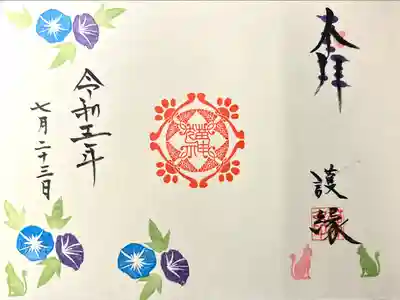 奉拝
護縁
令和五年
七月二十三日